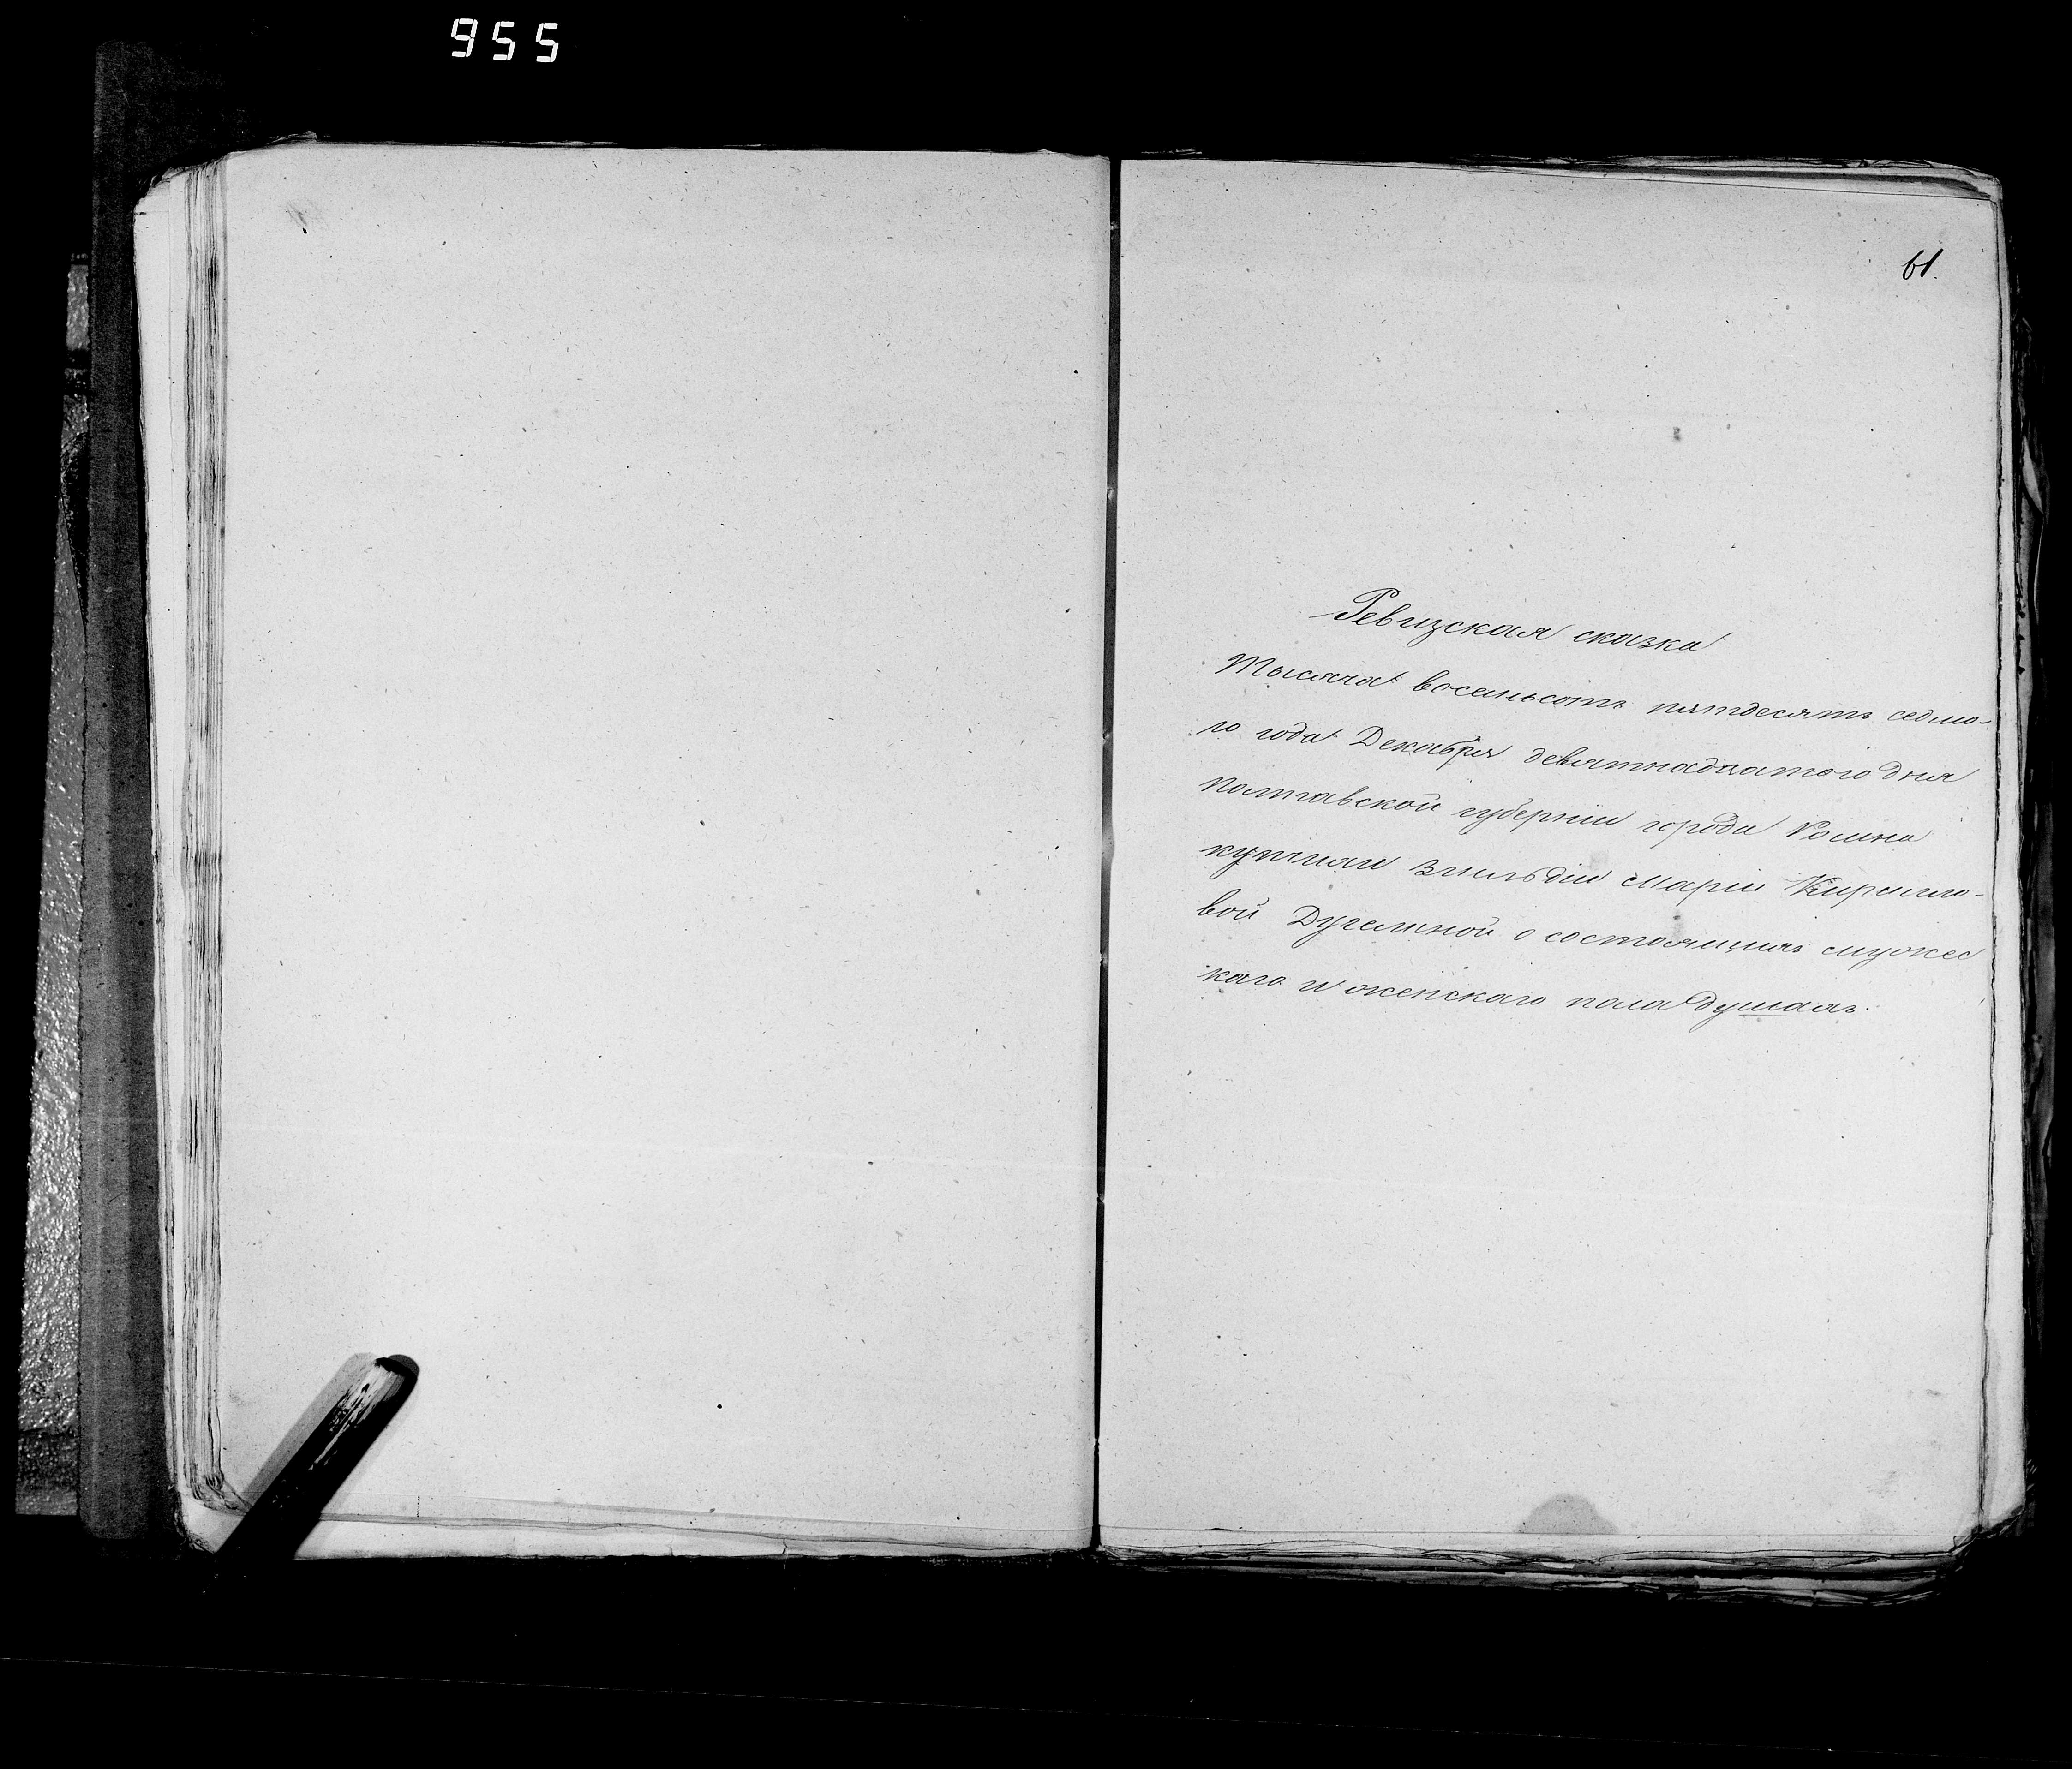 955
61.
Ревизская сказка
Тысяча восемьсотъ пятдесятъ седмо-
го года Декабря девятнадцатого дня
Полтавской губерніи города Ромна
купчихи гильдіи Маріи Кирило-
вой о состоящихъ мужес
каго и женскаго пола душахъ.